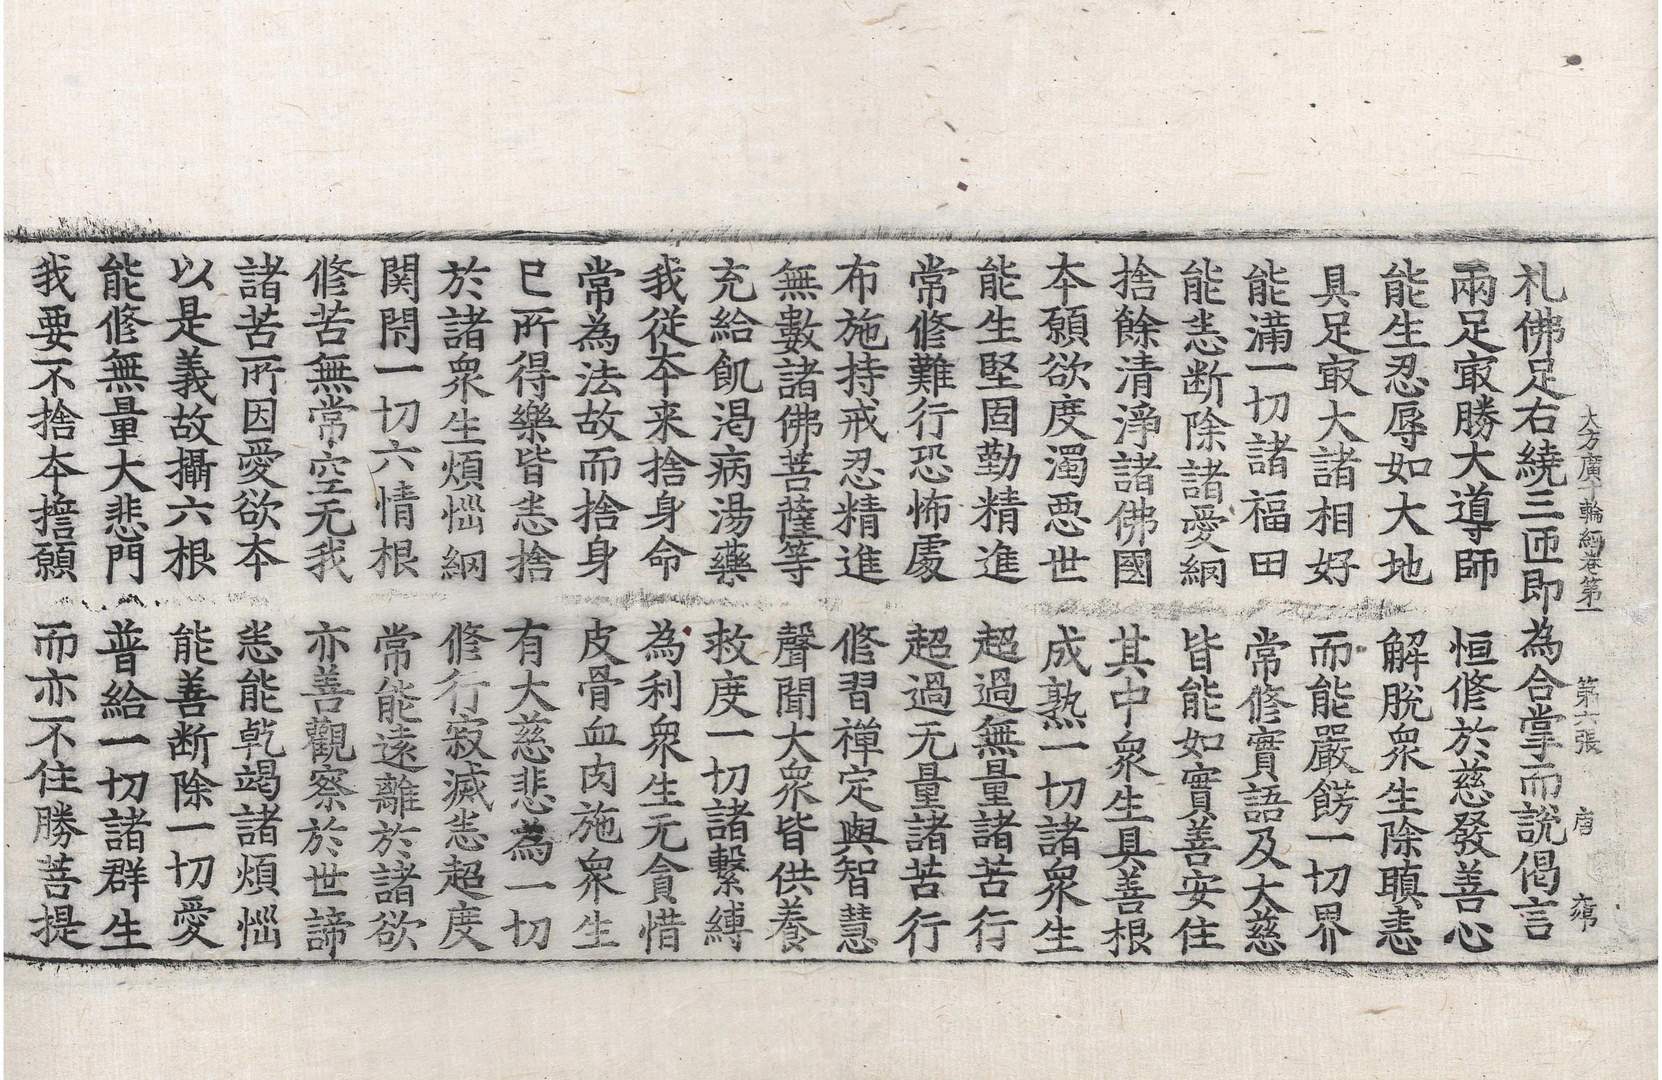 大方廣十輪經卷第一 第六張 唐
礼佛足右繞三匝即為合掌而說偈言
兩足㝡勝大導師 恒修於慈發善心
能生忍辱如大地 解脫衆生除瞋恚
具足㝡大諸相好 而能嚴餝一切界
能滿一切諸福田 常修實語及大慈
能悉断除諸愛網 皆能如實善安住
捨餘清淨諸佛國 其中衆生具善根
本願欲度濁惡世 成熟一切諸衆生
能生堅固勤精進 超過無量諸苦行
常修難行恐怖處 超過无量諸苦行
布施持戒忍精進 修習禪定與智慧
無數諸佛菩薩等 聲聞大衆皆供養
充給飢渴病湯藥 救度一切諸繫縛
我從本来捨身命 為利衆生无貪惜
常為法故而捨身 皮骨血肉施衆生
已所得樂皆悉捨 有大慈悲為一切
於諸衆生煩惱網 修行寂滅悉超度
関閇一切六情根 常能遠離於諸欲
修苦無常空无我 亦善觀察於世諦
諸苦所因愛欲本 悉能乾竭諸煩惱
以是義故攝六根 能善断除一切愛
能修無量大悲門 普給一切諸群生
我要不捨本擔願 而亦不住勝菩提